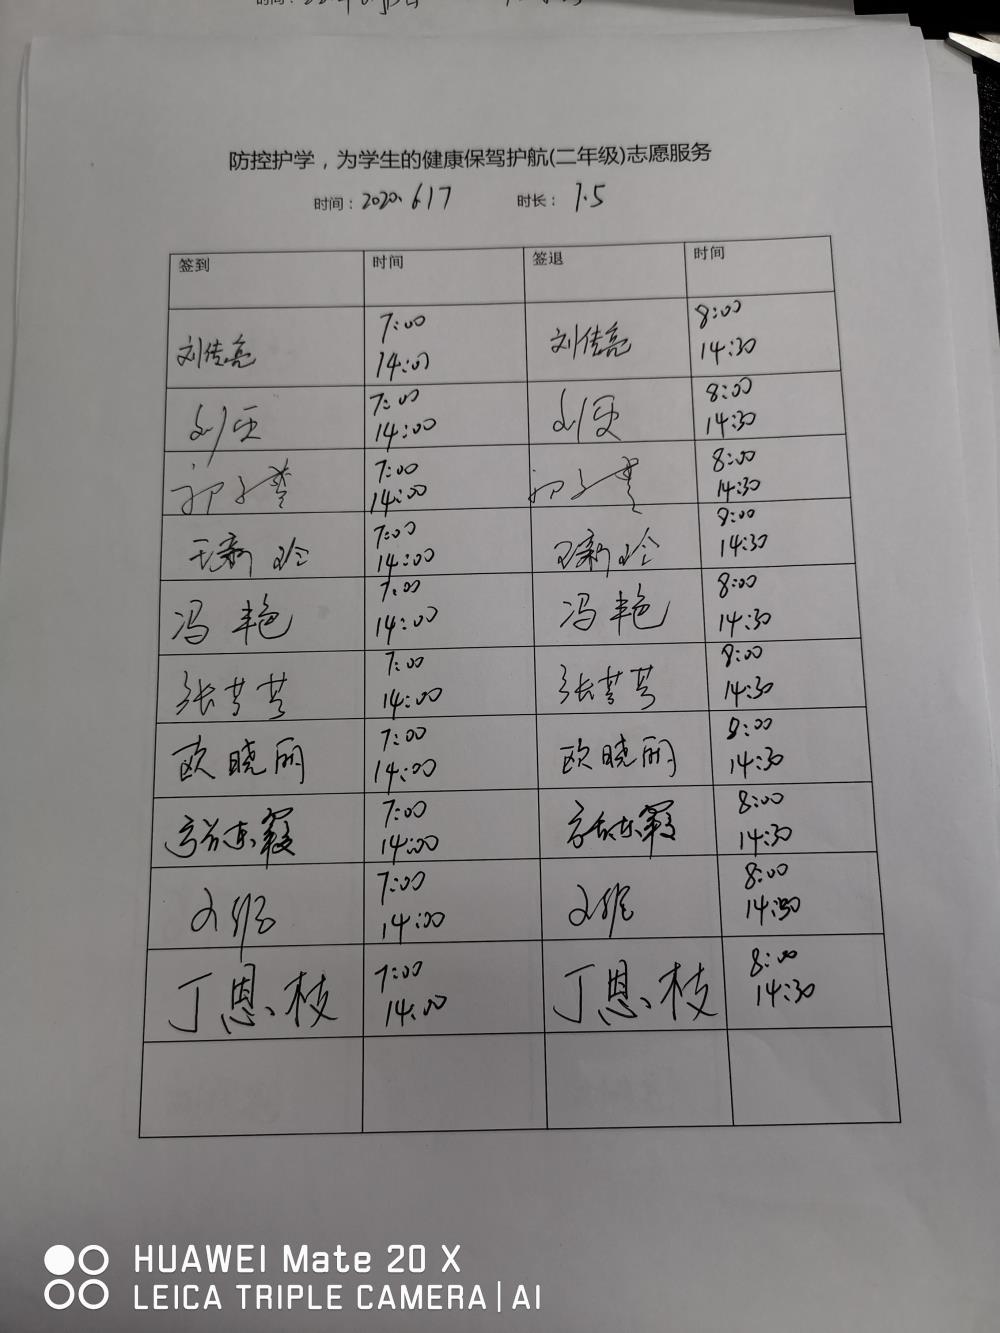 防控护学，为学生的健康保驾护航(二年级)志愿服务
时间：2020.6.17 时长：1.5
签到 时间 签退 时间
刘传亮 7:00 14:00 刘传亮 8:00 14:30
7:00 14:00 8:00 14:30
7:00 14:00 8:00 14:30
王新玲 7:00 14:00 王新玲 8:00 14:30
冯艳 7:00 14:00 冯艳 8:00 14:30
张芳芳 7:00 14:00 张芳芳 8:00 14:30
欧晓丽 7:00 14:00 欧晓丽 8:00 14:30
7:00 14:00 8:00 14:30
7:00 14:00 8:00 14:30
丁恩枝 7:00 14:00 丁恩枝 8:00 14:30
HUAWEI Mate 20 X
LEICA TRIPLE CAMERA | AI